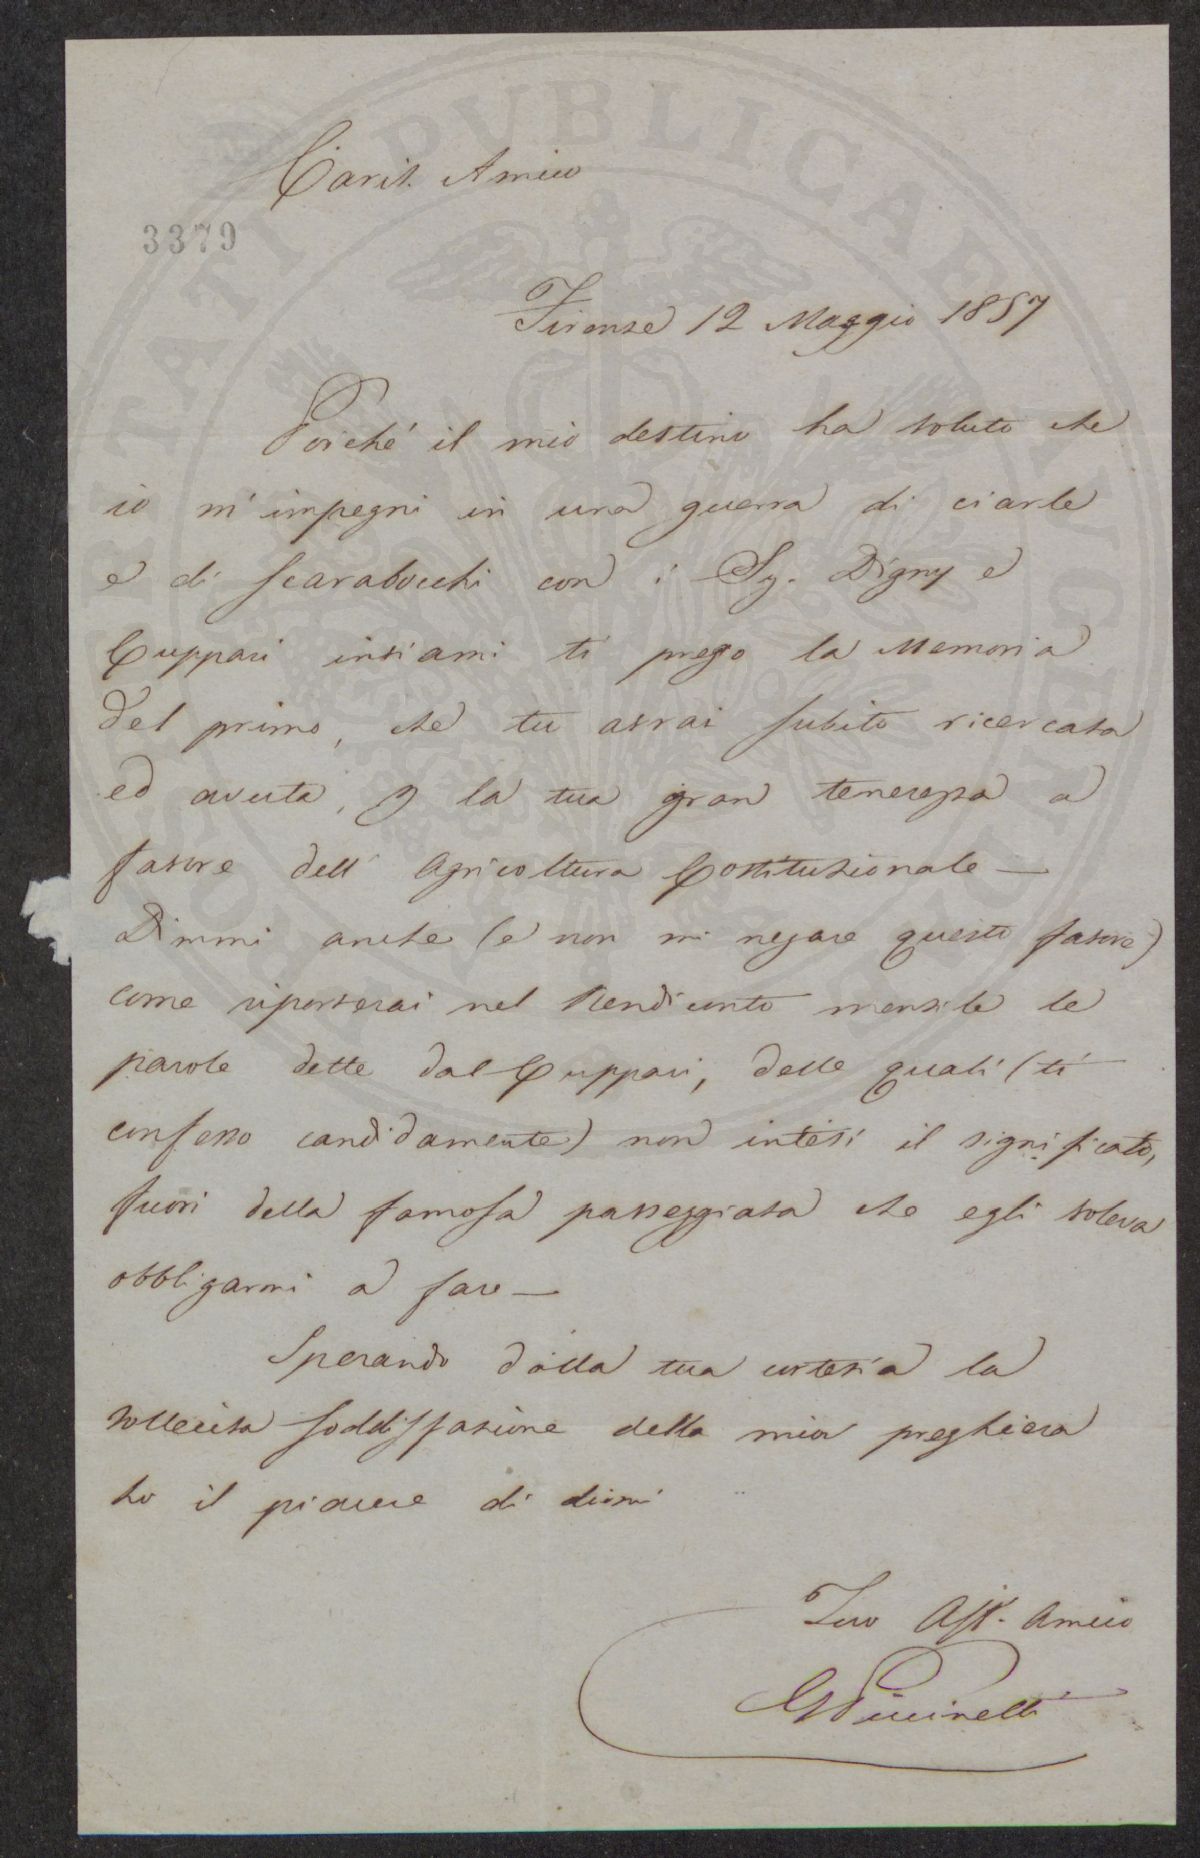 Caris. Amico
3379
Firenze 12 Maggio 1857
Poiché il mio destino ha voluto che
io m'impegni in una guerra di ciarle
e di scarabocchi con i Sy. Digny e
Cuppari inviami ti prego la Memoria
del primo, che tu avrai subito ricercata
ed avuta, p la tua gran tenerezza a
favore dell' Agricoltura Costituzionale —
Dimmi anche (e non mi negare questo favore)
come riporterai nel Rendiconto mensile le
parole dette dal Cuppari, delle quali (ti
confesso candidamente) non intesi il significato,
fuori della famosa passeggiata che egli voleva
obbligarmi a fare —
Sperando dalla tua cortesia la
sollecita soddisfazione della mia preghiera
ho il piacere di dirmi
Tuo Aff. Amico